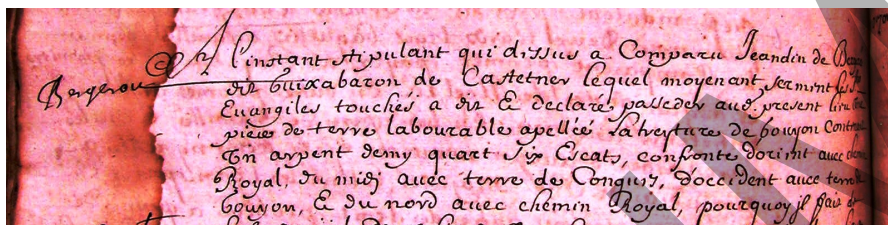 Bergerou
A l'instant stipulant qui dessus a Comparu Jeandin de
dit Guixabaron de Castetner lequel moyenant serment
Euangiles touchés a dit & declaré posseder aud. present lieu
piéce de terre labourable apellée de bouyon
Un arpent demy quart six Escats, confronte dorient auec
Royal, du midj auec terre de Conquis, d'occident auec terre
bouyon, & du nord auec chemin Royal, pourquoy il fait